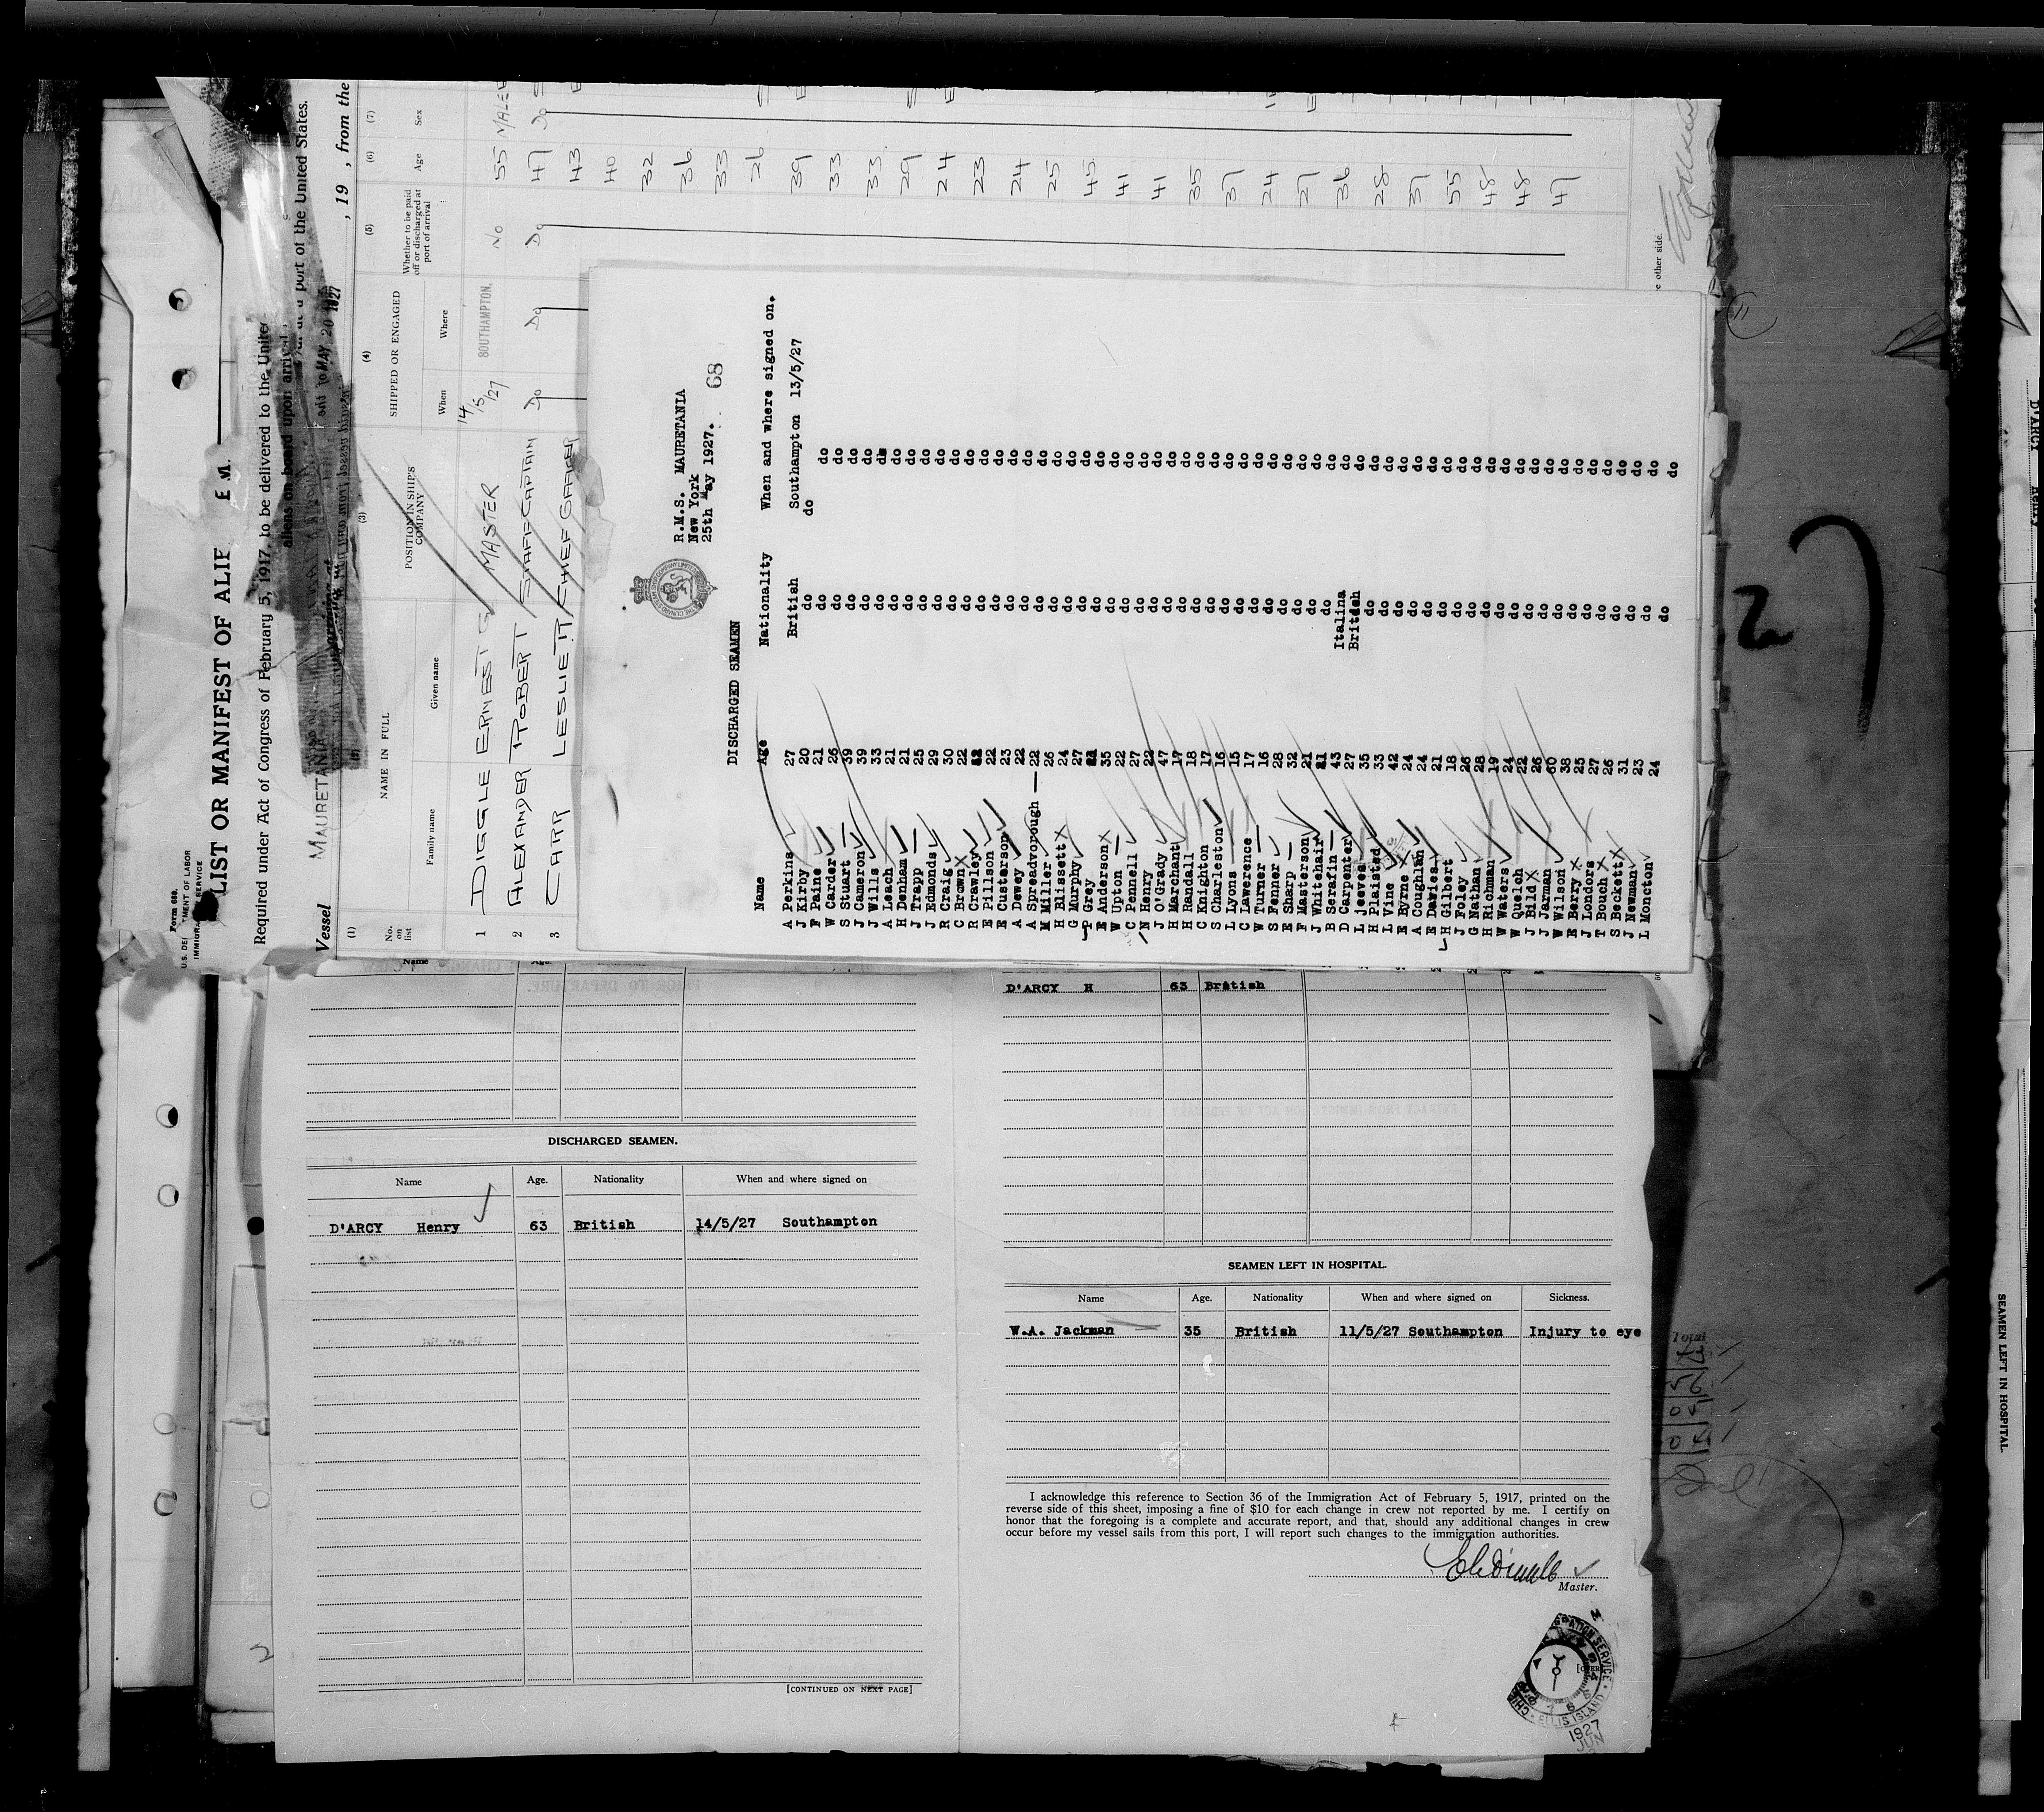 Form 680.
IMMIGRA SERVICE
LIST OR MANIFEST OF ALIE
Required under Act of Congress of February 5, 1917, to be delivered to the United
aliens on board upon arrival
at a port of the United States.
Vessel MAURETANIA
MAY 20 1927
, 19 , from the
(1) (3) (4) (5) (6) (7)
No. on list
NAME IN FULL
Family name Given name
POSITION IN SHIP'S COMPANY
SHIPPED OR ENGAGED
When Where
Whether to be paid off or discharged at port of arrival
Age Sex
1 DIGGLE ERNEST G MASTER 14/5/27 SOUTHAMPTON. No 55 MALE
2 ALEXANDER ROBERT STAFF CAPTAIN Do Do Do 47 Do
3 CARR LESLIE R CHIEF OFFICER 43
40
32
36
33
26
39
33
33
29
24
23
24
25
45
41
41
35
37
24
27
36
28
37
55
48
48
47
e other side.
R.M.S. MAURETANIA
New York
25th May 1927.
68
DISCHARGED SEAMEN
Name Age Nationality When and where signed on.
A Perkins 27 British Southampton 13/5/27
J Kirby 20 do do
F Paine 21 do do
W Carder 26 do do
S Stuart 39 do do
J Cameron 39 do do
J Wills 33 do do
A Leach 21 do do
H Denham 21 do do
J Trapp 25 do do
J Edmonds 29 do do
R Craig 30 do do
C Brown 22 do do
R Crawley do do
E Pillson 22 do do
E Custerson 23 do do
A Dewey 22 do do
A Spreadvorough 22 do do
M Miller 26 do do
H Blissett 24 do do
G Murphy 27 do do
P Grey do do
E Anderson 35 do do
W Upton 22 do do
C Pennell 27 do do
N Henry 22 do do
J O'Grady 47 do do
H Marchant 17 do do
H Randall 18 do do
C Knighton 17 do do
S Charleston 16 do do
L Lyons 15 do do
C Lawerence 17 do do
W Turner 16 do do
S Fenner 28 do do
E Sharp 32 do do
F Masterson 21 do do
J Whitehair 21 do do
B Serafin 43 Italina do
D Carpenter 27 British do
L jeeves 35 do do
H Plaisted 33 do do
L Vine 42 do do
E Byrne 24 do do
A Coughlan 24 do do
E Davies 21 do do
H Gilbert 18 do do
J Foley 26 do do
G Nathan 28 do do
H Richman 19 do do
W Waters 24 do do
W Quelch 22 do do
J Bild 26 do do
J Jarman 60 do do
W Wilson 38 do do
E Berry 25 do do
J Londors 27 do do
T Bouch 26 do do
S Beckett 31 do do
J Newman 23 do do
L Moncton 24 do do
Name Age.
DISCHARGED SEAMEN.
Name Age. Nationality When and where signed on
D'ARCY Henry 63 British 14/5/27 Southampton
[CONTINUED ON NEXT PAGE]
D'ARCY H 63 British
SEAMEN LEFT IN HOSPITAL.
Name Age. Nationality When and where signed on Sickness.
W.A. Jackman 35 British 11/5/27 Southampton Injury to eye
I acknowledge this reference to Section 36 of the Immigration Act of February 5, 1917, printed on the
reverse side of this sheet, imposing a fine of $10 for each change in crew not reported by me. I certify on
honor that the foregoing is a complete and accurate report, and that, should any additional changes in crew
occur before my vessel sails from this port, I will report such changes to the immigration authorities.
Master.
ELLIS ISLAND
1927
JUN
Total
2
SEAMEN LEFT IN HOSPITAL
D'ARCY